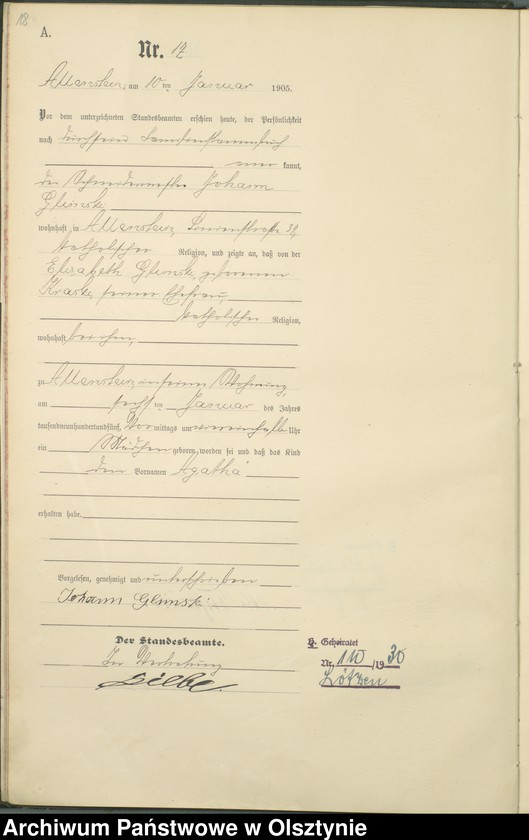 18
A.
Nr. 17
Allenstein, am 10 ten Januar 1905.
Vor dem unterzeichneten Standesbeamten erschien heute, der Persönlichkeit
nach durch sein Familienstammbuch
kannt,
der Schneidermeister Johann
Glinski
wohnhaft in Allenstein, 39,
katholischer Religion, und zeigte an, daß von der
Elisabeth Glinski, geborenen
seiner Ehefrau,
katholischer Religion,
wohnhaft bei ihm,
zu Allenstein, in seiner Wohnung,
am sechs ten Januar des Jahres
tausendneunhundertundfünf, Vormittags um Uhr
ein Mädchen geboren worden sei und daß das Kind
den Vornamen Agatha
erhalten habe.
Vorgelesen, genehmigt und unterschrieben
Johann Glinski
Der Standesbeamte.
In Vertretung
H. Geheiratet
Nr. 110 /1930
Lötzen
Archiwum Państwowe w Olsztynie